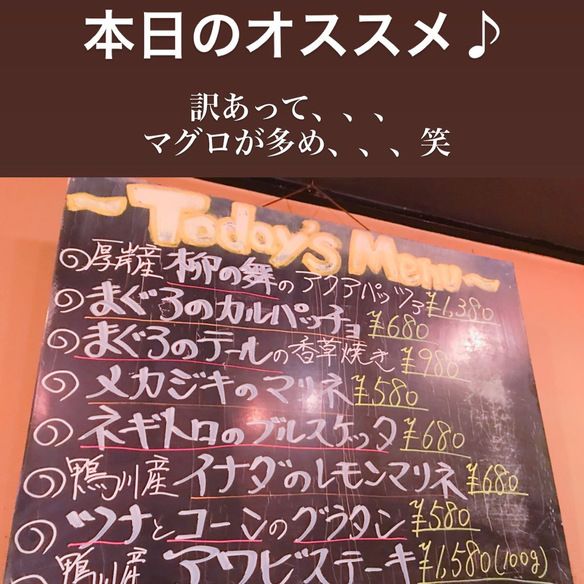 本日のオススメ♪
訳あって、、、
マグロが多め、、、笑
～Today's Menu～
厚岸産 柳の舞のアクアパッツァ ¥1,380
まぐろのカルパッチョ ¥680
まぐろのテールの香草焼き ¥980
メカジキのマリネ ¥580
ネギトロのブルスケッタ ¥680
鴨川産 イナダのレモンマリネ ¥680
ツナとコーンのグラタン ¥580
鴨川産 アワビステーキ ¥1,580(100g)